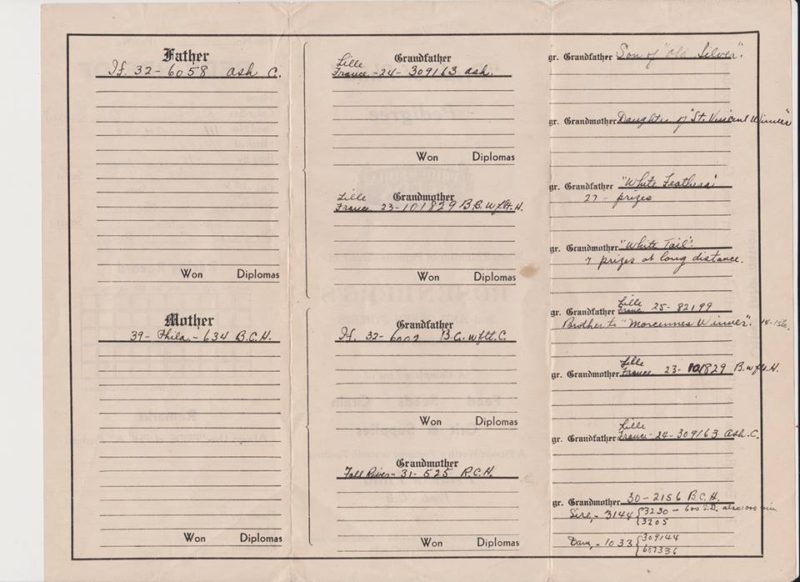 Father
If. 32-6058 ash C.
Won Diplomas
Mother
39- Phila - 634 B.C.H.
Won Diplomas
Grandfather
Lille
France -24- 309163 ash.
Won Diplomas
Grandmother
Lille
France 23-101829 B.B.W flt. H.
Won Diplomas
Grandfather
If. 32- 6002 B.C. W flt. C.
Won Diplomas
Grandmother
Fall River - 31 - 525 R.C.H.
Won Diplomas
gr. Grandfather Son of "Old Silver".
gr. Grandmother Daughter of "St. Vincent Winner"
gr. Grandfather "White Feathers"
27 - prizes
gr. Grandmother "White Tail".
7 prizes at long distance.
Lille
gr. Grandfather France 25-82199
Brother to "Morcennes Winner".
Lille
gr. Grandmother France 23-101829 B.W flt. H.
Lille
gr. Grandfather France -24-309163 ash. C.
gr. Grandmother 30-2156 B.C.H.
Sire, - 3144 { 3230 - 600 S.D. also 1000
3205
Dam, - 1033 { 309144
607336